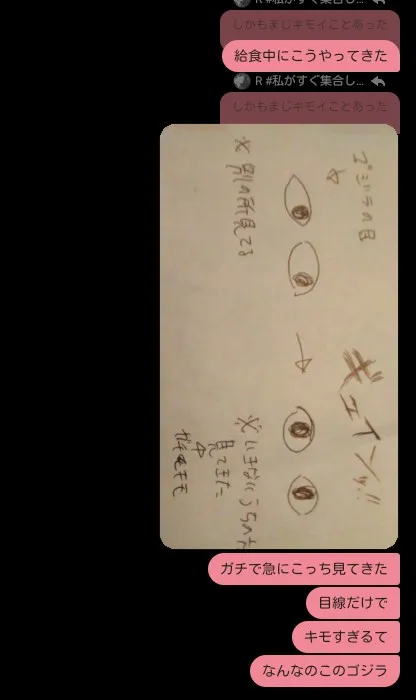 R #私がすぐ集合し...
しかもまじキモイことあった
給食中にこうやってきた
R #私がすぐ集合し...
しかもまじキモイことあった
ゴジラの目
※別の所見てる
→
ギュイン!!
※いきなりうちの方
見てきた
ガチキモ
ガチで急にこっち見てきた
目線だけで
キモすぎるて
なんなのこのゴジラ